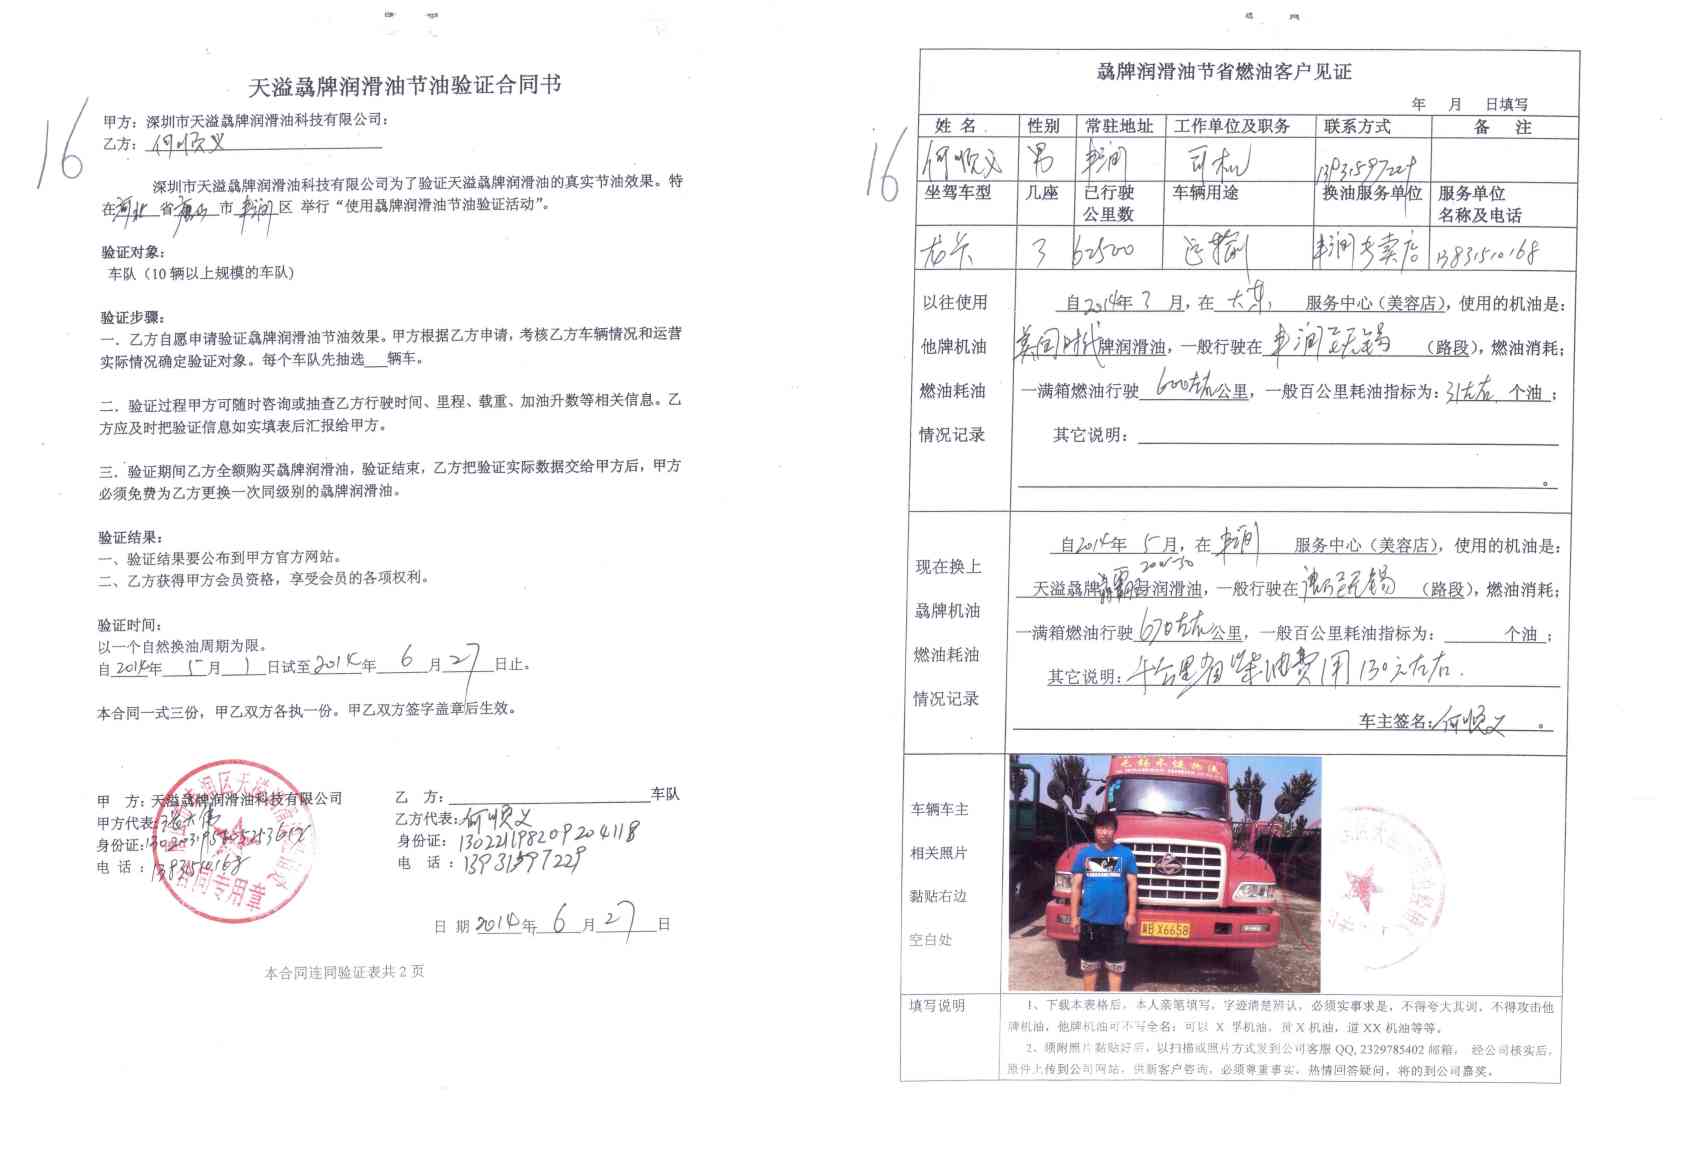 天溢骉牌润滑油节油验证合同书
16
甲方：深圳市天溢骉牌润滑油科技有限公司：
乙方：何顺义
深圳市天溢骉牌润滑油科技有限公司为了验证天溢骉牌润滑油的真实节油效果。特
在河北省唐山市丰润区 举行“使用骉牌润滑油节油验证活动”。
验证对象：
车队（10 辆以上规模的车队)
验证步骤：
一．乙方自愿申请验证骉牌润滑油节油效果。甲方根据乙方申请，考核乙方车辆情况和运营
实际情况确定验证对象。每个车队先抽选___辆车。
二．验证过程甲方可随时咨询或抽查乙方行驶时间、里程、载重、加油升数等相关信息。乙
方应及时把验证信息如实填表后汇报给甲方。
三．验证期间乙方全额购买骉牌润滑油，验证结束，乙方把验证实际数据交给甲方后，甲方
必须免费为乙方更换一次同级别的骉牌润滑油。
验证结果：
一、验证结果要公布到甲方官方网站。
二、乙方获得甲方会员资格，享受会员的各项权利。
验证时间：
以一个自然换油周期为限。
自2014年 5月 1日试至2014年 6月27日止。
本合同一式三份，甲乙双方各执一份。甲乙双方签字盖章后生效。
甲 方：天溢骉牌润滑油科技有限公司
甲方代表：
身份证：
电 话：13831510168
乙 方：车队
乙方代表：何顺义
身份证：130221198209204118
电 话：13931597229
日 期 2014年 6月 27日
本合同连同验证表共 2 页
骉牌润滑油节省燃油客户见证
年 月 日填写
16
姓 名 性别 常驻地址 工作单位及职务 联系方式 备 注
何顺义 男 丰润 司机 13931597229
坐驾车型 几座 已行驶公里数 车辆用途 换油服务单位 服务单位名称及电话
龙卡 3 62500 运输 丰润专卖店 13831510168
以往使用
他牌机油
燃油耗油
情况记录
自2014年 月，在 服务中心（美容店)，使用的机油是：
英国时代牌润滑油，一般行驶在丰润至无锡（路段)，燃油消耗；
一满箱燃油行驶 600左右公里，一般百公里耗油指标为：31左右 个油；
其它说明：
现在换上
骉牌机油
燃油耗油
情况记录
自2014年 5月，在 丰润 服务中心（美容店)，使用的机油是：
20W-50
天溢骉牌润滑油，一般行驶在至无锡（路段)，燃油消耗；
一满箱燃油行驶670左右公里，一般百公里耗油指标为： 个油；
其它说明：千公里省柴油费用130元左右．
车主签名：何顺义。
车辆车主
相关照片
黏贴右边
空白处
冀B X6658
填写说明
1、下载本表格后，本人亲笔填写，字迹清楚辨认，必须实事求是，不得夸大其词，不得攻击他
牌机油，他牌机油可不写全名；可以 X 孚机油，货X机油，道XX机油等等。
2、须附照片黏贴好后，以扫描或照片方式发到公司客服 QQ, 2329785402 邮箱， 经公司核实后，
原件上传到公司网站，供新客户咨询，必须尊重事实，热情回答疑问，将的到公司嘉奖。